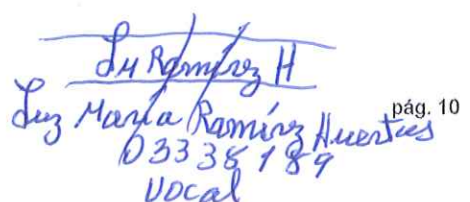 Lu Ramírez H
Luz María Ramírez Huertas
pág. 10
03338189
Vocal